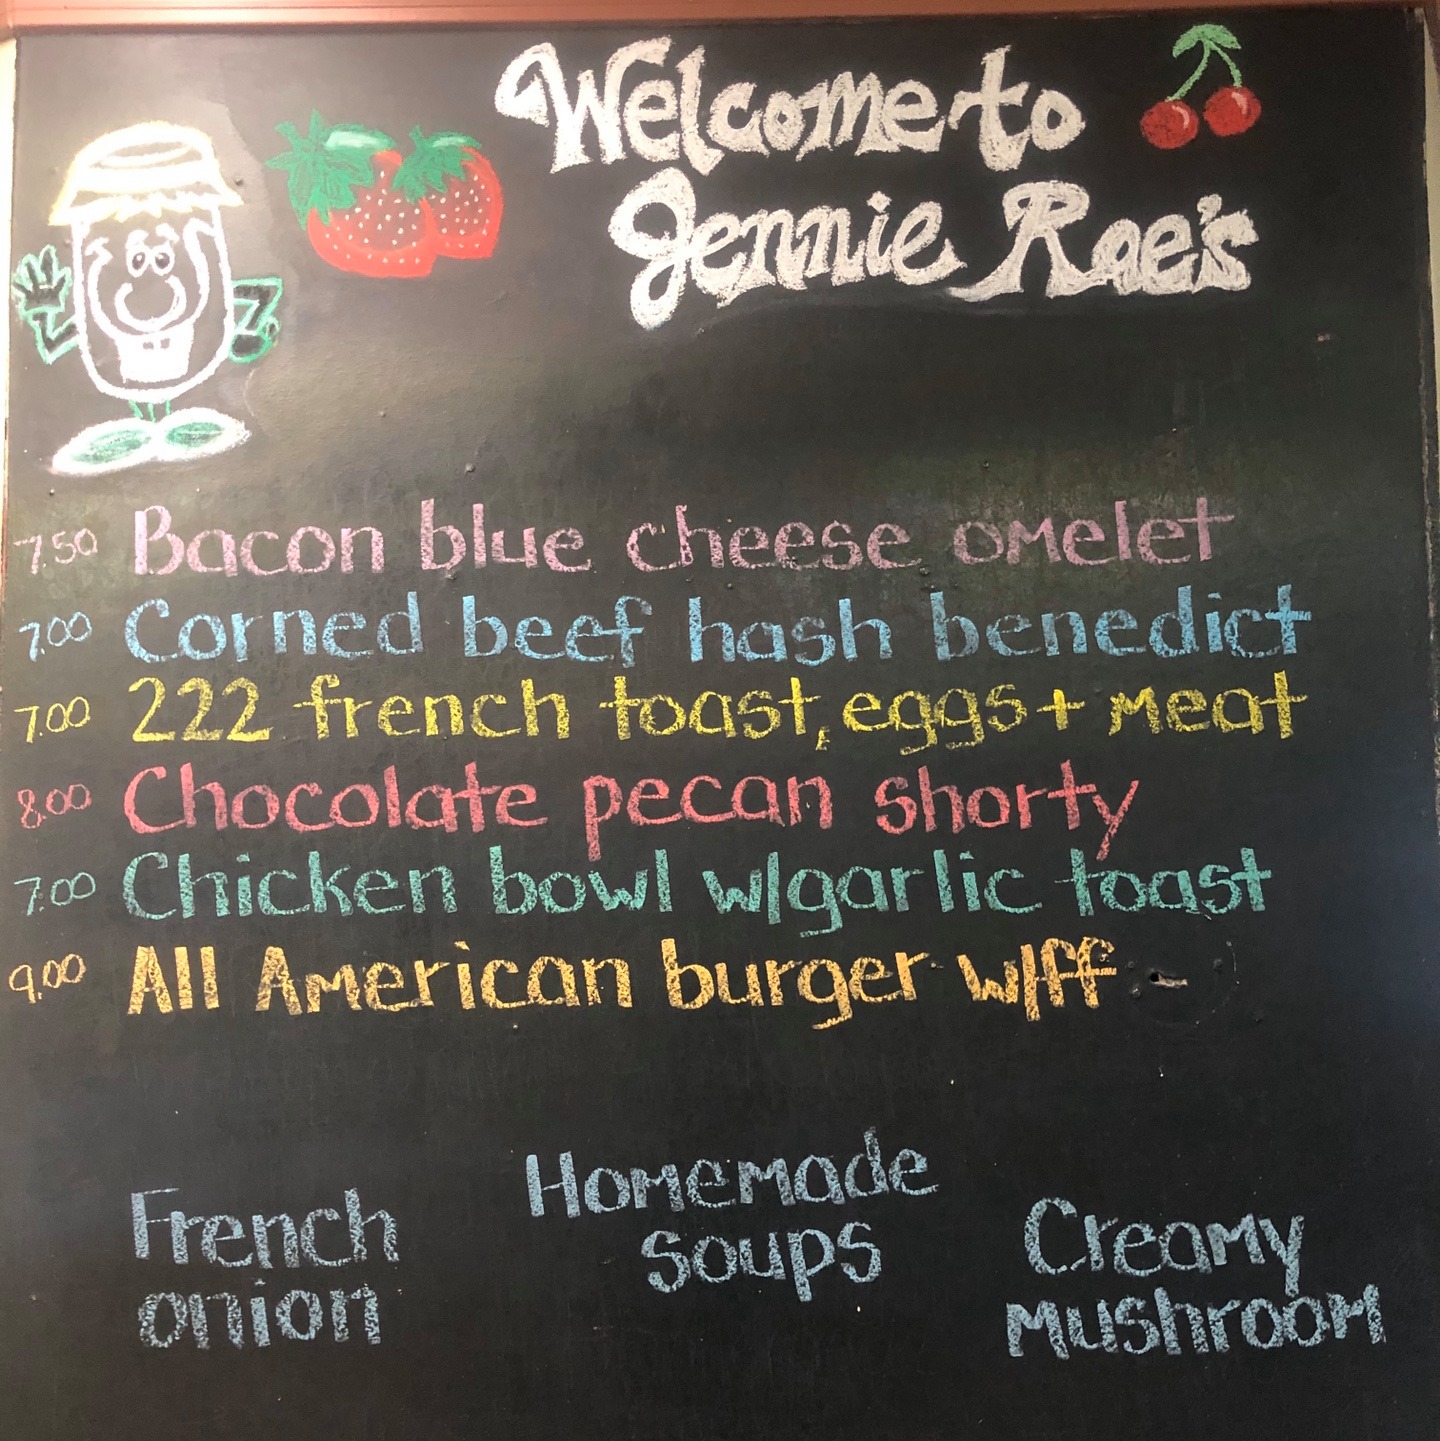 Welcome to
Jennie Rae's
7.50 Bacon blue cheese omelet
7.00 Corned beef hash benedict
7.00 222 french toast, eggs + meat
8.00 Chocolate pecan shorty
7.00 Chicken bowl w/garlic toast
9.00 All American burger w/ff
Homemade
soups
French
onion
Creamy
mushroom